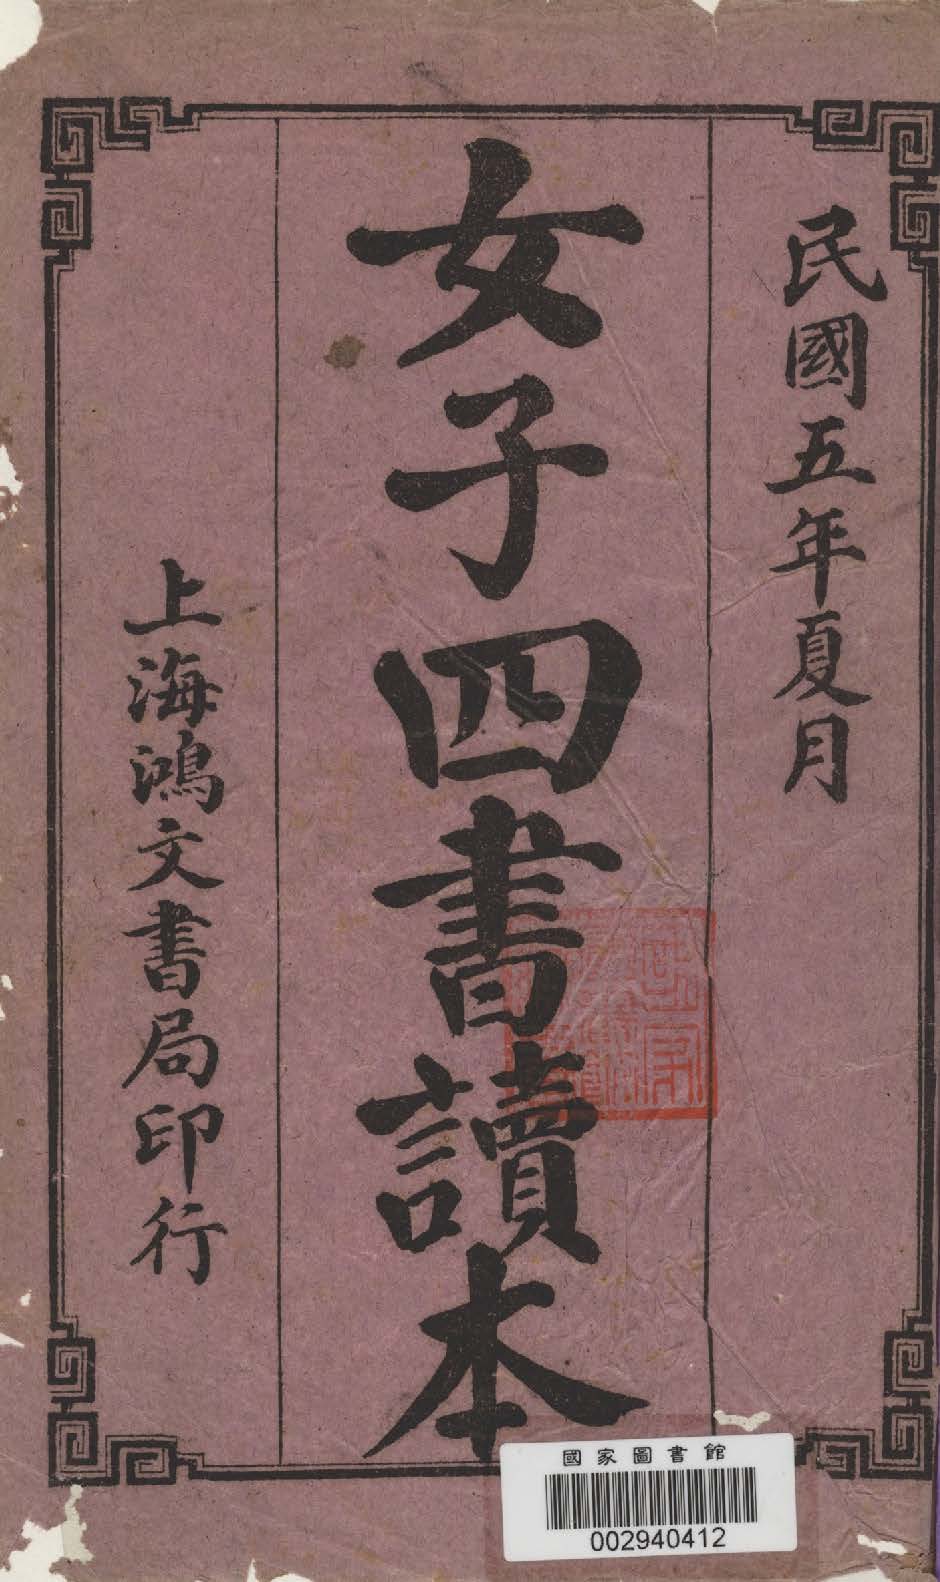 民國五年夏月
女子四書讀本
上海鴻文書局印行
國家圖書館
002940412